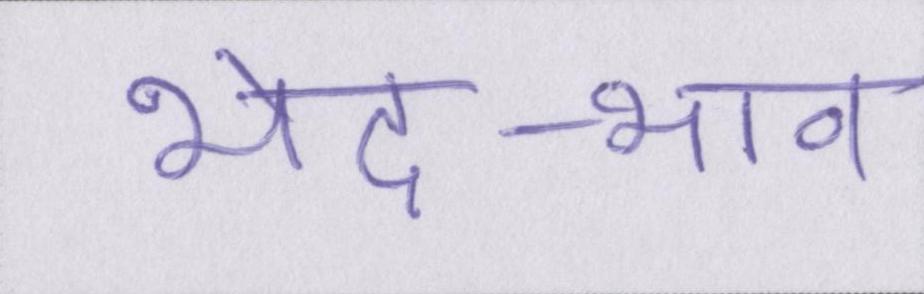 भेद-भाव